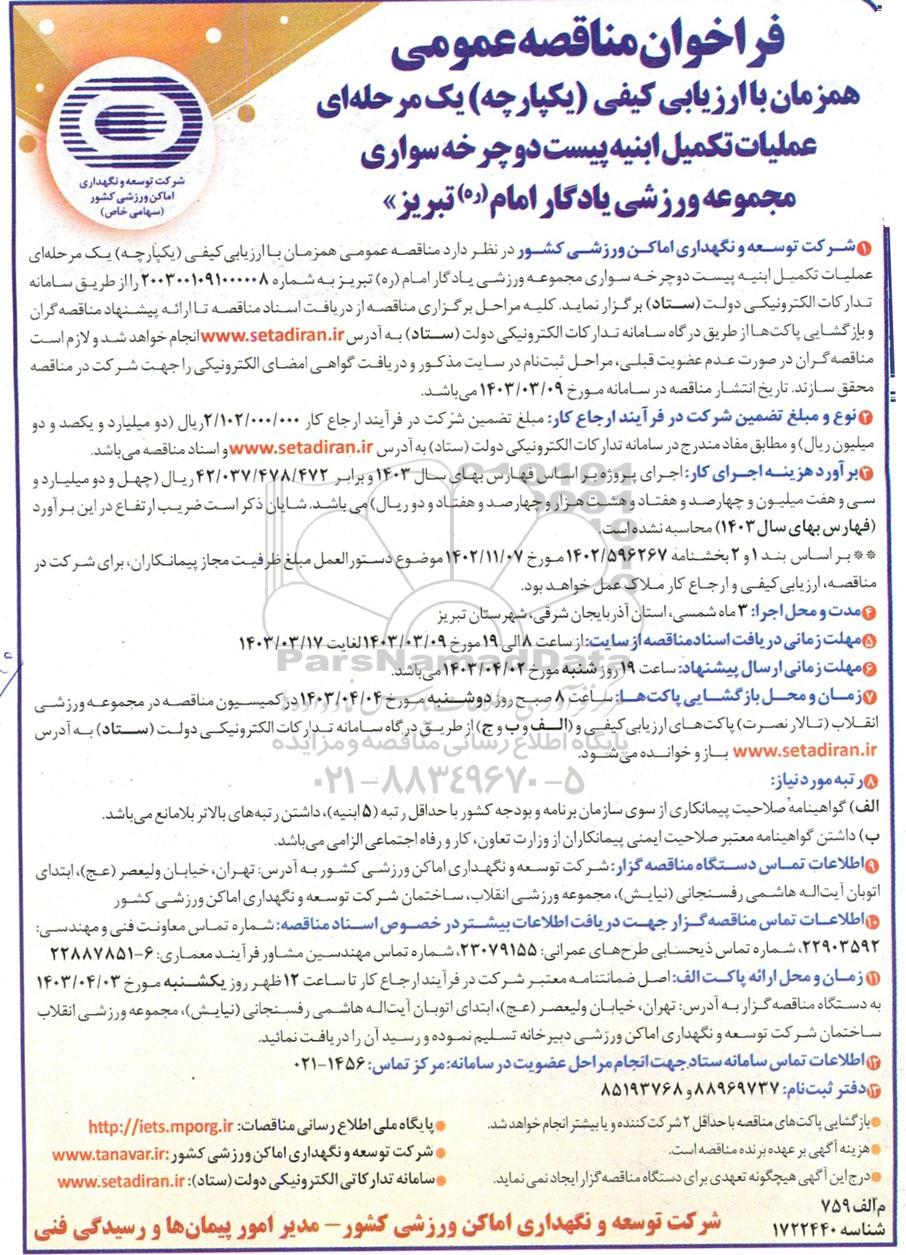 فراخوان مناقصه عمومی
همزمان با ارزیابی کیفی (یکپارچه) یک مرحله‌ای
عملیات تکمیل ابنیه پیست دوچرخه سواری
مجموعه ورزشی یادگار امام (ره) تبریز»
شرکت توسعه و نگهداری
اماکن ورزشی کشور
(سهامی خاص)
۱ شرکت توسعه و نگهداری اماکن ورزشی کشور در نظر دارد مناقصه عمومی همزمان با ارزیابی کیفی (یکپارچه) یک مرحله‌ای
عملیات تکمیل ابنیه پیست دوچرخه سواری مجموعه ورزشی یادگار امام (ره) تبریز به شماره ۲۰۰۳۰۰۱۰۹۱۰۰۰۰۰۸ را از طریق سامانه
تدارکات الکترونیکی دولت (ستاد) برگزار نماید. کلیه مراحل برگزاری مناقصه از دریافت اسناد مناقصه تا ارائه پیشنهاد مناقصه گران
و بازگشایی پاکت‌ها از طریق درگاه سامانه تدارکات الکترونیکی دولت (ستاد) به آدرس www.setadiran.ir انجام خواهد شد و لازم است
مناقصه گران در صورت عدم عضویت قبلی، مراحل ثبت‌نام در سایت مذکور و دریافت گواهی امضای الکترونیکی را جهت شرکت در مناقصه
محقق سازند. تاریخ انتشار مناقصه در سامانه مورخ ۱۴۰۳/۰۳/۰۹ می‌باشد.
۲ نوع و مبلغ تضمین شرکت در فرآیند ارجاع کار: مبلغ تضمین شرکت در فرآیند ارجاع کار ۲/۱۰۲/۰۰۰/۰۰۰ ریال (دو میلیارد و یکصد و دو
میلیون ریال) و مطابق مفاد مندرج در سامانه تدارکات الکترونیکی دولت (ستاد) به آدرس www.setadiran.ir و اسناد مناقصه می‌باشد.
۳ برآورد هزینه اجرای کار: اجرای پروژه بر اساس فهارس بهای سال ۱۴۰۳ و برابر ۴۲/۰۳۷/۴۷۸/۴۷۲ ریال (چهل و دو میلیارد و
سی و هفت میلیون و چهارصد و هفتاد و هشت هزار و چهارصد و هفتاد و دو ریال) می باشد. شایان ذکر است ضریب ارتفاع در این برآورد
(فهارس بهای سال ۱۴۰۳) محاسبه نشده است.
** بر اساس بند ۱ و ۲ بخشنامه ۱۴۰۲/۵۹۶۲۶۷ مورخ ۱۴۰۲/۱۱/۰۷ موضوع دستورالعمل مبلغ ظرفیت مجاز پیمانکاران، برای شرکت در
مناقصه، ارزیابی کیفی و ارجاع کار ملاک عمل خواهد بود.
۴ مدت و محل اجرا: ۳ ماه شمسی، استان آذربایجان شرقی، شهرستان تبریز
۵ مهلت زمانی دریافت اسناد مناقصه از سایت: از ساعت ۸ الی ۱۹ مورخ ۱۴۰۳/۰۳/۰۹ لغایت ۱۴۰۳/۰۳/۱۷
۶ مهلت زمانی ارسال پیشنهاد: ساعت ۱۹ روز شنبه مورخ ۱۴۰۳/۰۴/۰۲ می‌باشد.
۷ زمان و محل بازگشایی پاکت‌ها: ساعت ۸ صبح روز دوشنبه مورخ ۱۴۰۳/۰۴/۰۴ در کمیسیون مناقصه در مجموعه ورزشی
انقلاب (تالار نصرت) پاکت‌های ارزیابی کیفی و (الف و ب و ج) از طریق درگاه سامانه تدارکات الکترونیکی دولت (ستاد) به آدرس
www.setadiran.ir باز و خوانده می‌شود.
۸ رتبه مورد نیاز:
الف) گواهینامه صلاحیت پیمانکاری از سوی سازمان برنامه و بودجه کشور با حداقل رتبه (۵ ابنیه)، داشتن رتبه‌های بالاتر بلامانع می‌باشد.
ب) داشتن گواهینامه معتبر صلاحیت ایمنی پیمانکاران از وزارت تعاون، کار و رفاه اجتماعی الزامی می‌باشد.
۹ اطلاعات تماس دستگاه مناقصه گزار: شرکت توسعه و نگهداری اماکن ورزشی کشور به آدرس: تهران، خیابان ولیعصر (عج)، ابتدای
اتوبان آیت‌اله هاشمی رفسنجانی (نیایش)، مجموعه ورزشی انقلاب، ساختمان شرکت توسعه و نگهداری اماکن ورزشی کشور
۱۰ اطلاعات تماس مناقصه گزار جهت دریافت اطلاعات بیشتر در خصوص اسناد مناقصه: شماره تماس معاونت فنی و مهندسی:
۲۲۹۰۳۵۹۲، شماره تماس ذیحسابی طرح‌های عمرانی: ۲۳۰۷۹۱۵۵، شماره تماس مهندسین مشاور فرآیند معماری: ۶-۲۲۸۸۷۸۵۱
۱۱ زمان و محل ارائه پاکت الف: اصل ضمانتنامه معتبر شرکت در فرآیند ارجاع کار تا ساعت ۱۲ ظهر روز یکشنبه مورخ ۱۴۰۳/۰۴/۰۳
به دستگاه مناقصه گزار به آدرس: تهران، خیابان ولیعصر (عج)، ابتدای اتوبان آیت‌اله هاشمی رفسنجانی (نیایش)، مجموعه ورزشی انقلاب
ساختمان شرکت توسعه و نگهداری اماکن ورزشی دبیرخانه تسلیم نموده و رسید آن را دریافت نمائید.
۱۲ اطلاعات تماس سامانه ستاد جهت انجام مراحل عضویت در سامانه: مرکز تماس: ۱۴۵۶-۰۲۱
۱۳ دفتر ثبت‌نام: ۸۸۹۶۹۷۳۷ و ۸۵۱۹۳۷۶۸
بازگشایی پاکت‌های مناقصه با حداقل ۲ شرکت کننده و یا بیشتر انجام خواهد شد.
هزینه آگهی بر عهده برنده مناقصه است.
درج این آگهی هیچگونه تعهدی برای دستگاه مناقصه گزار ایجاد نمی نماید.
پایگاه ملی اطلاع رسانی مناقصات: http://iets.mporg.ir
شرکت توسعه و نگهداری اماکن ورزشی کشور: www.tanavar.ir
سامانه تدارکاتی الکترونیکی دولت (ستاد): www.setadiran.ir
م الف ۷۵۹
شناسه ۱۷۲۲۴۴۰
شرکت توسعه و نگهداری اماکن ورزشی کشور – مدیر امور پیمان‌ها و رسیدگی فنی
ParsNamadData
پایگاه اطلاع رسانی مناقصه و مزایده
۰۲۱-۸۸۳۴۹۶۷۰-۵